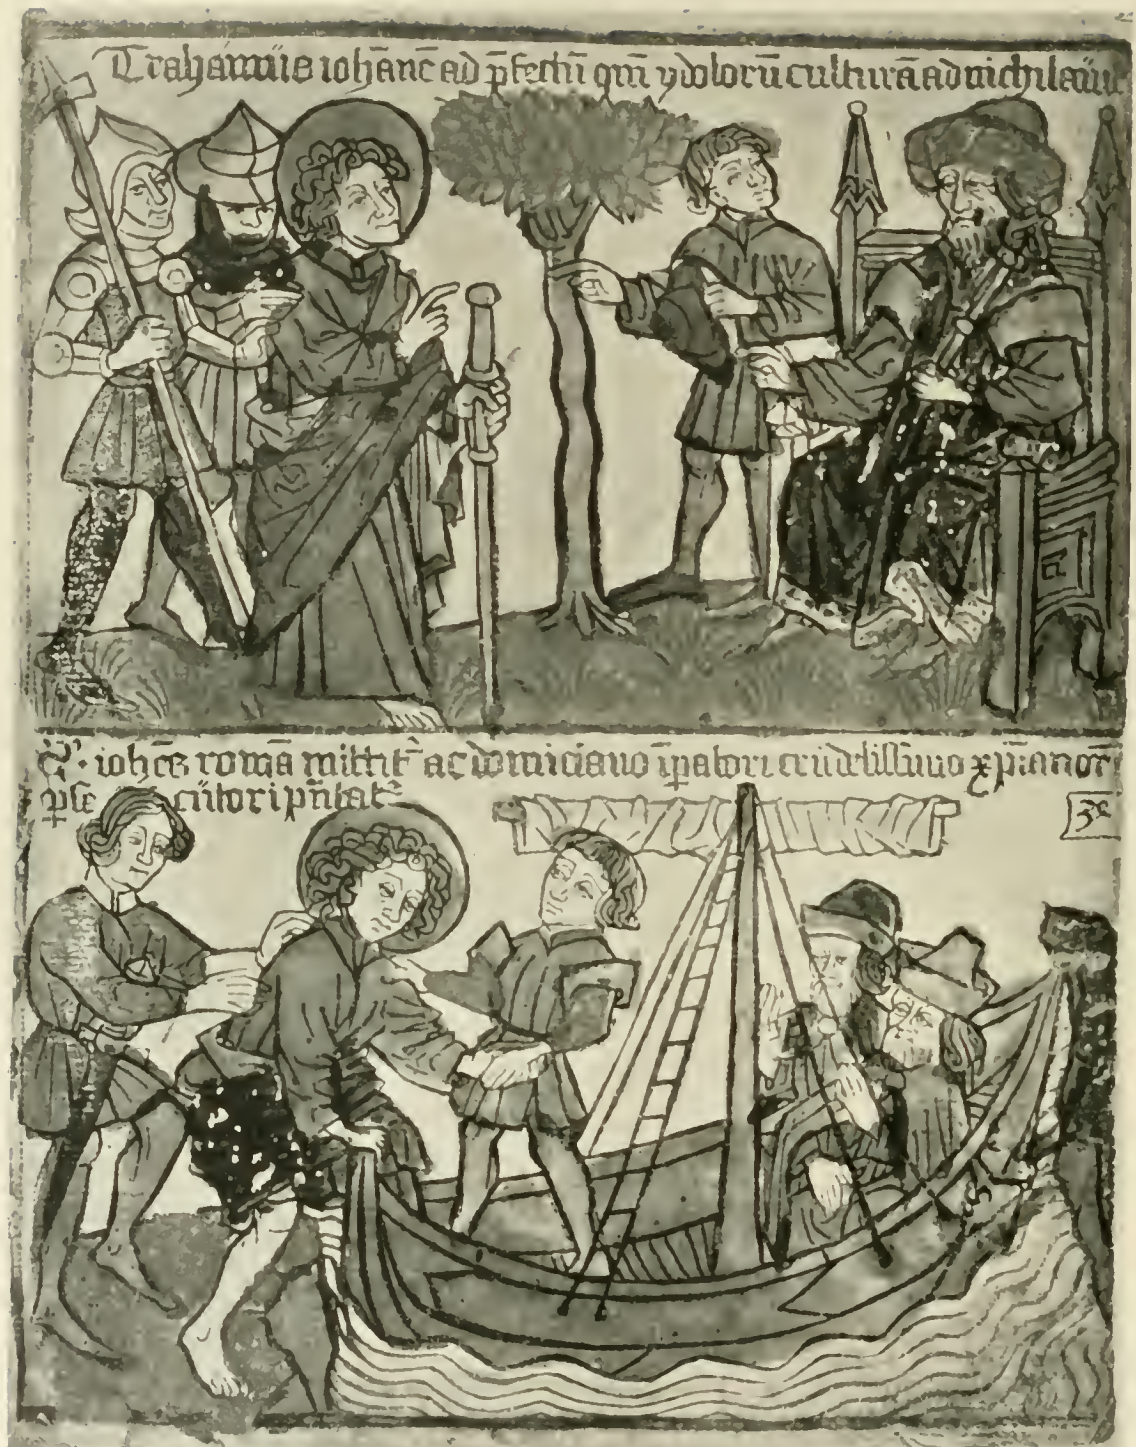 Trahamus iohāne ad p̄fectū qui ydolorū culturā ad nichilauit
S. iohēs romā mittit᷑ ac domiciano īpatori crudelissimo xp̄ianor
p̄se cutori p̄ntat᷑